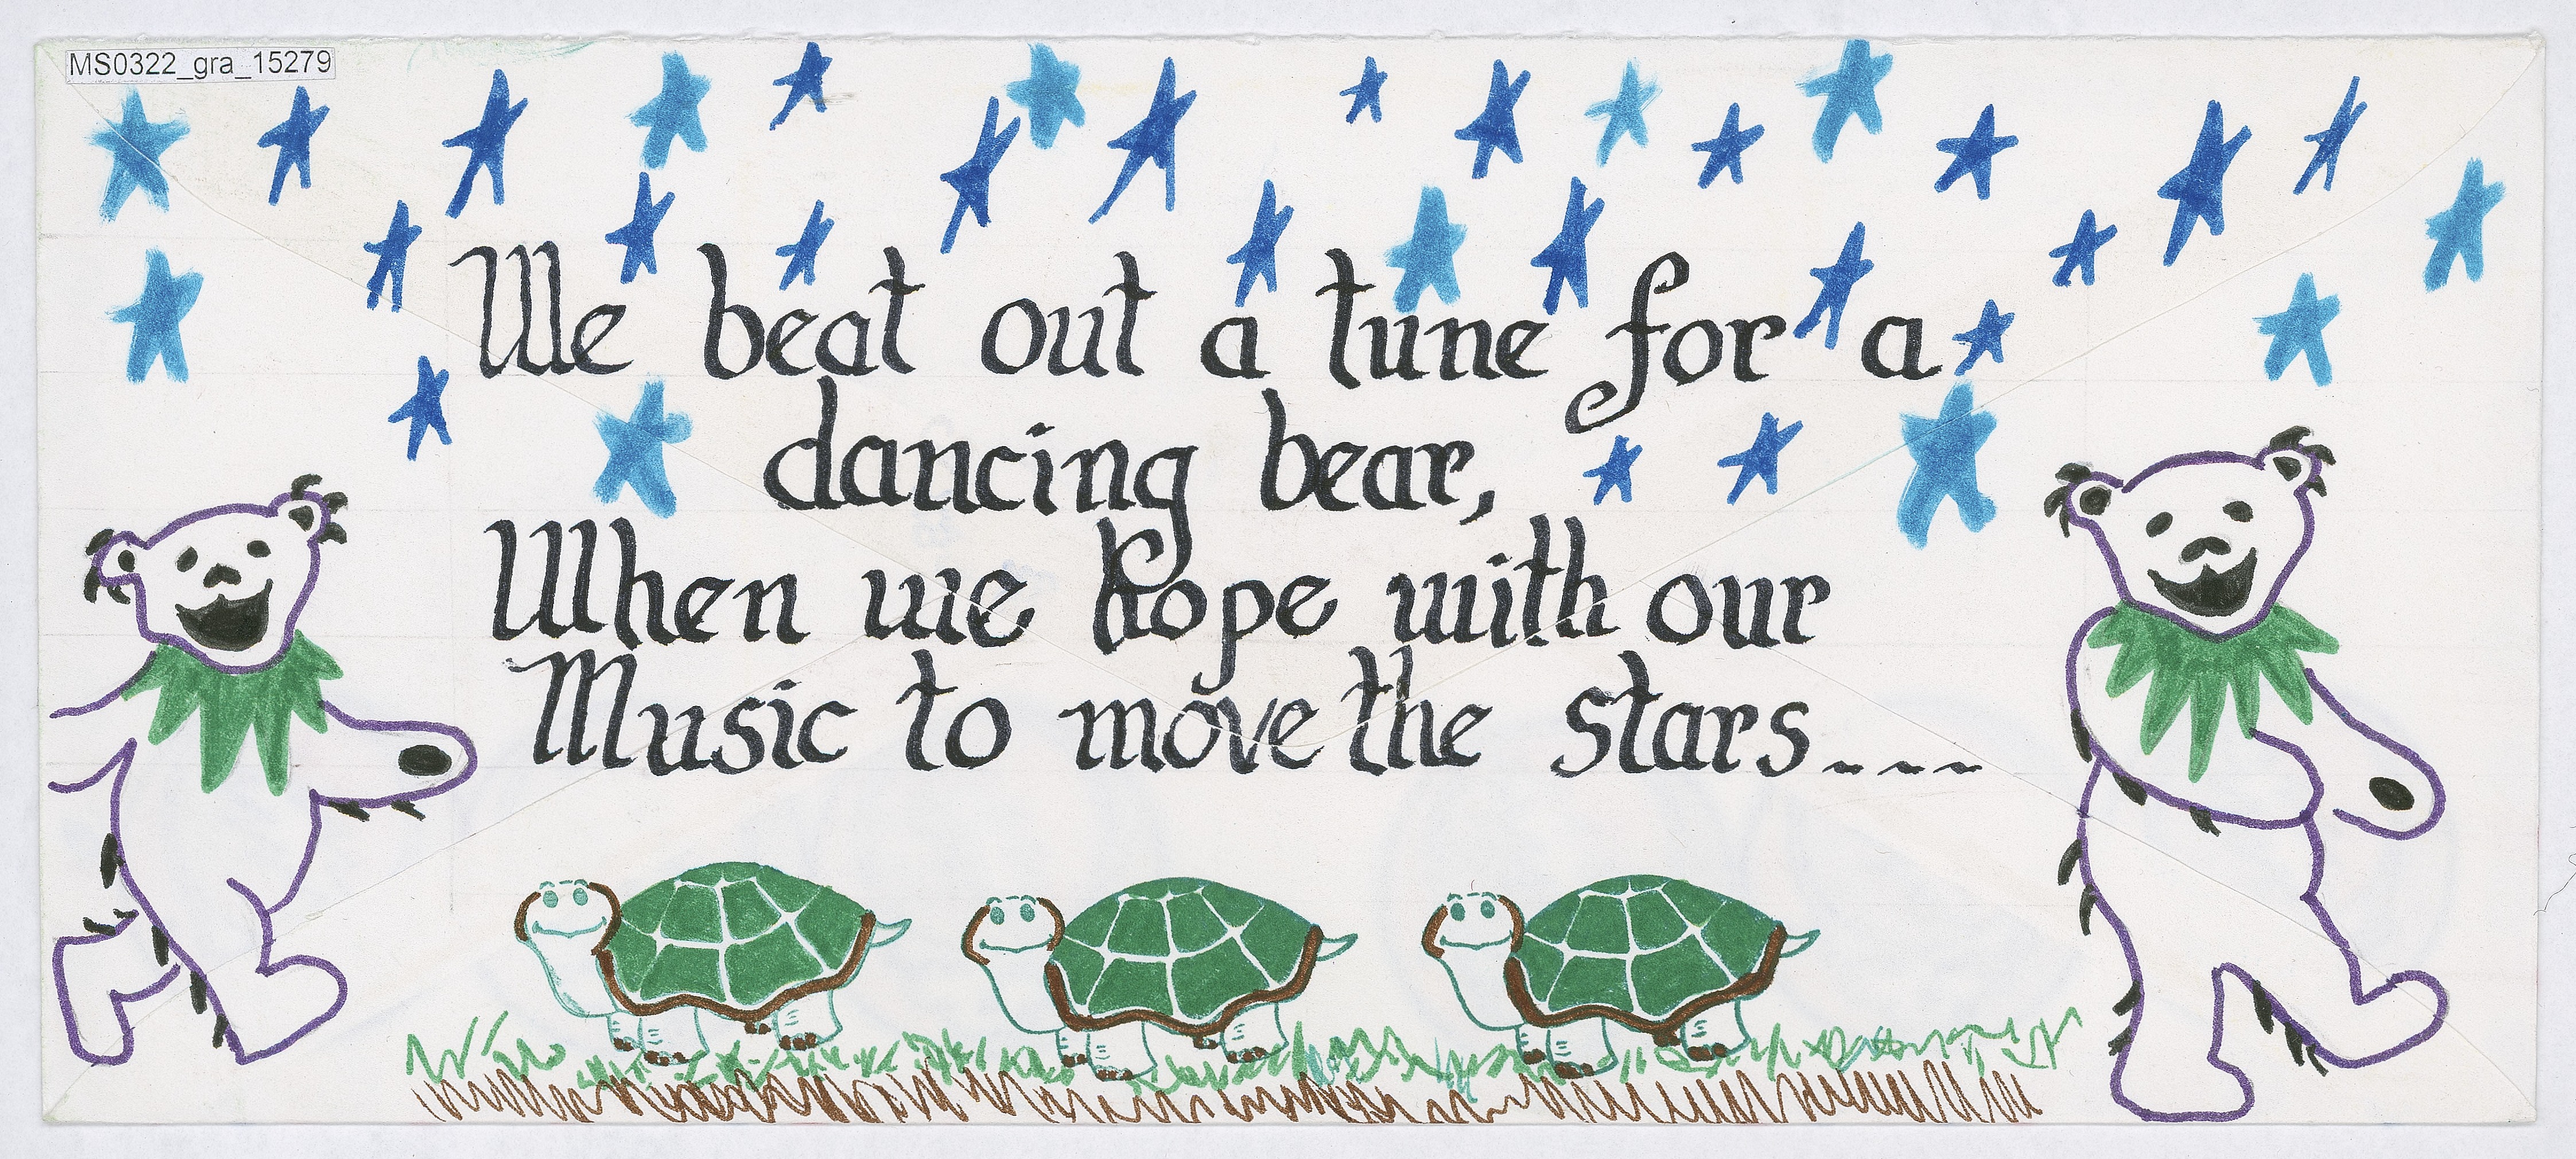 MS0322_gra_15279
We beat out a tune for a
dancing bear,
When we hope with our
Music to move the stars...